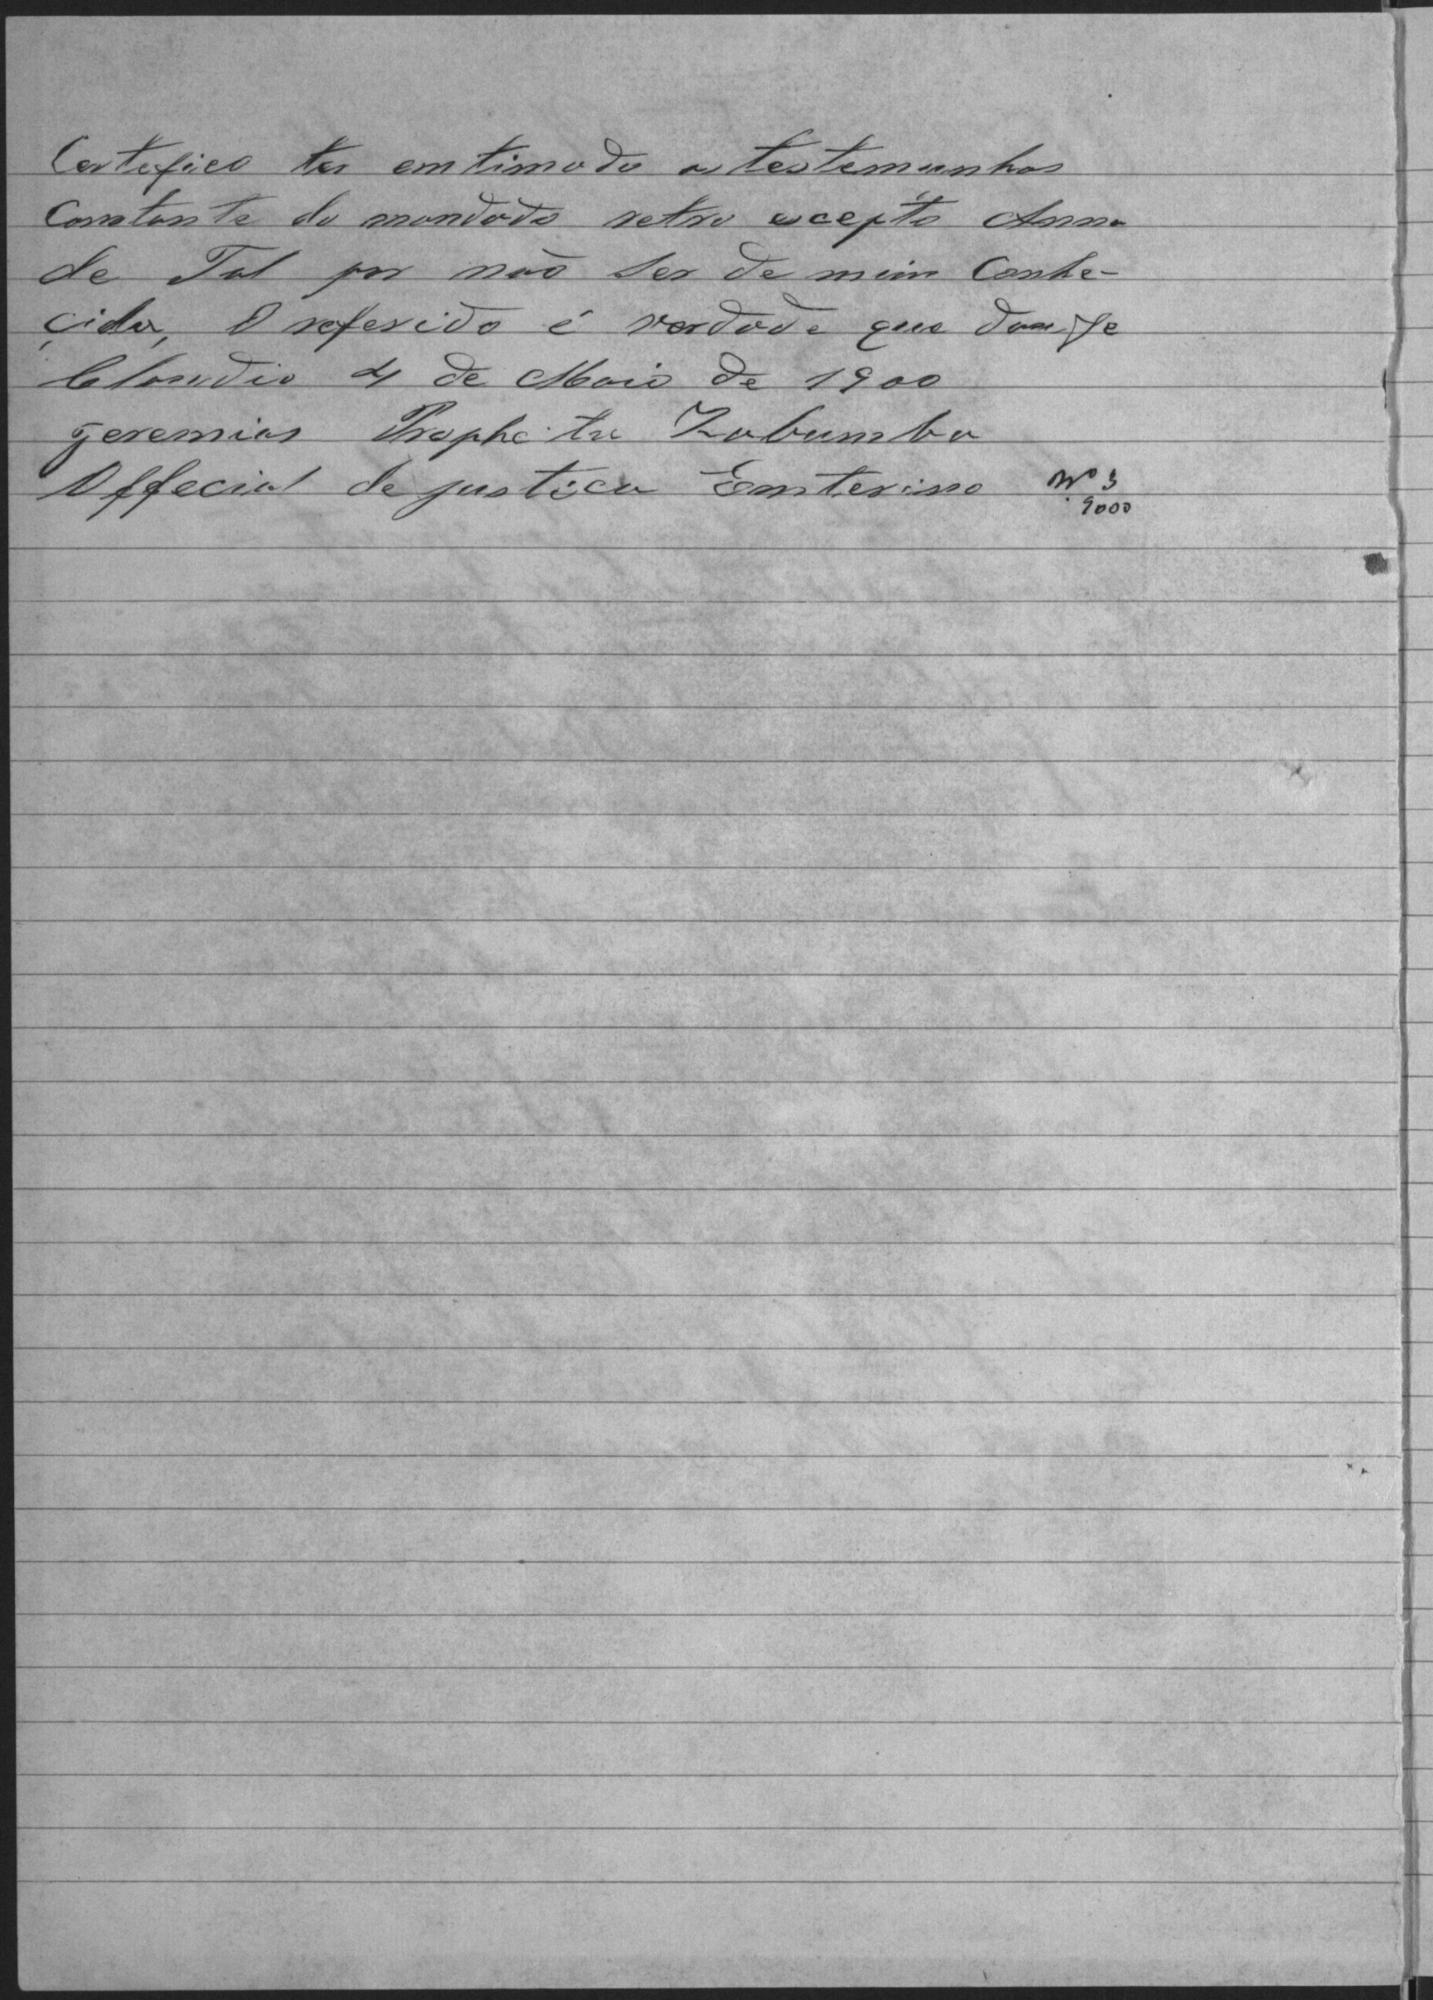 Certefico ter emtimado as testemunhas
Constante do mandado retro escepto Anna
de Tal por não ser de mim Conhe-
çida, O referido é verdade que dou fe
Claudio 4 de Maio de 1900
Jeremias Propheta Zabumba
Offecial de justica Emterino Nº 3
9000